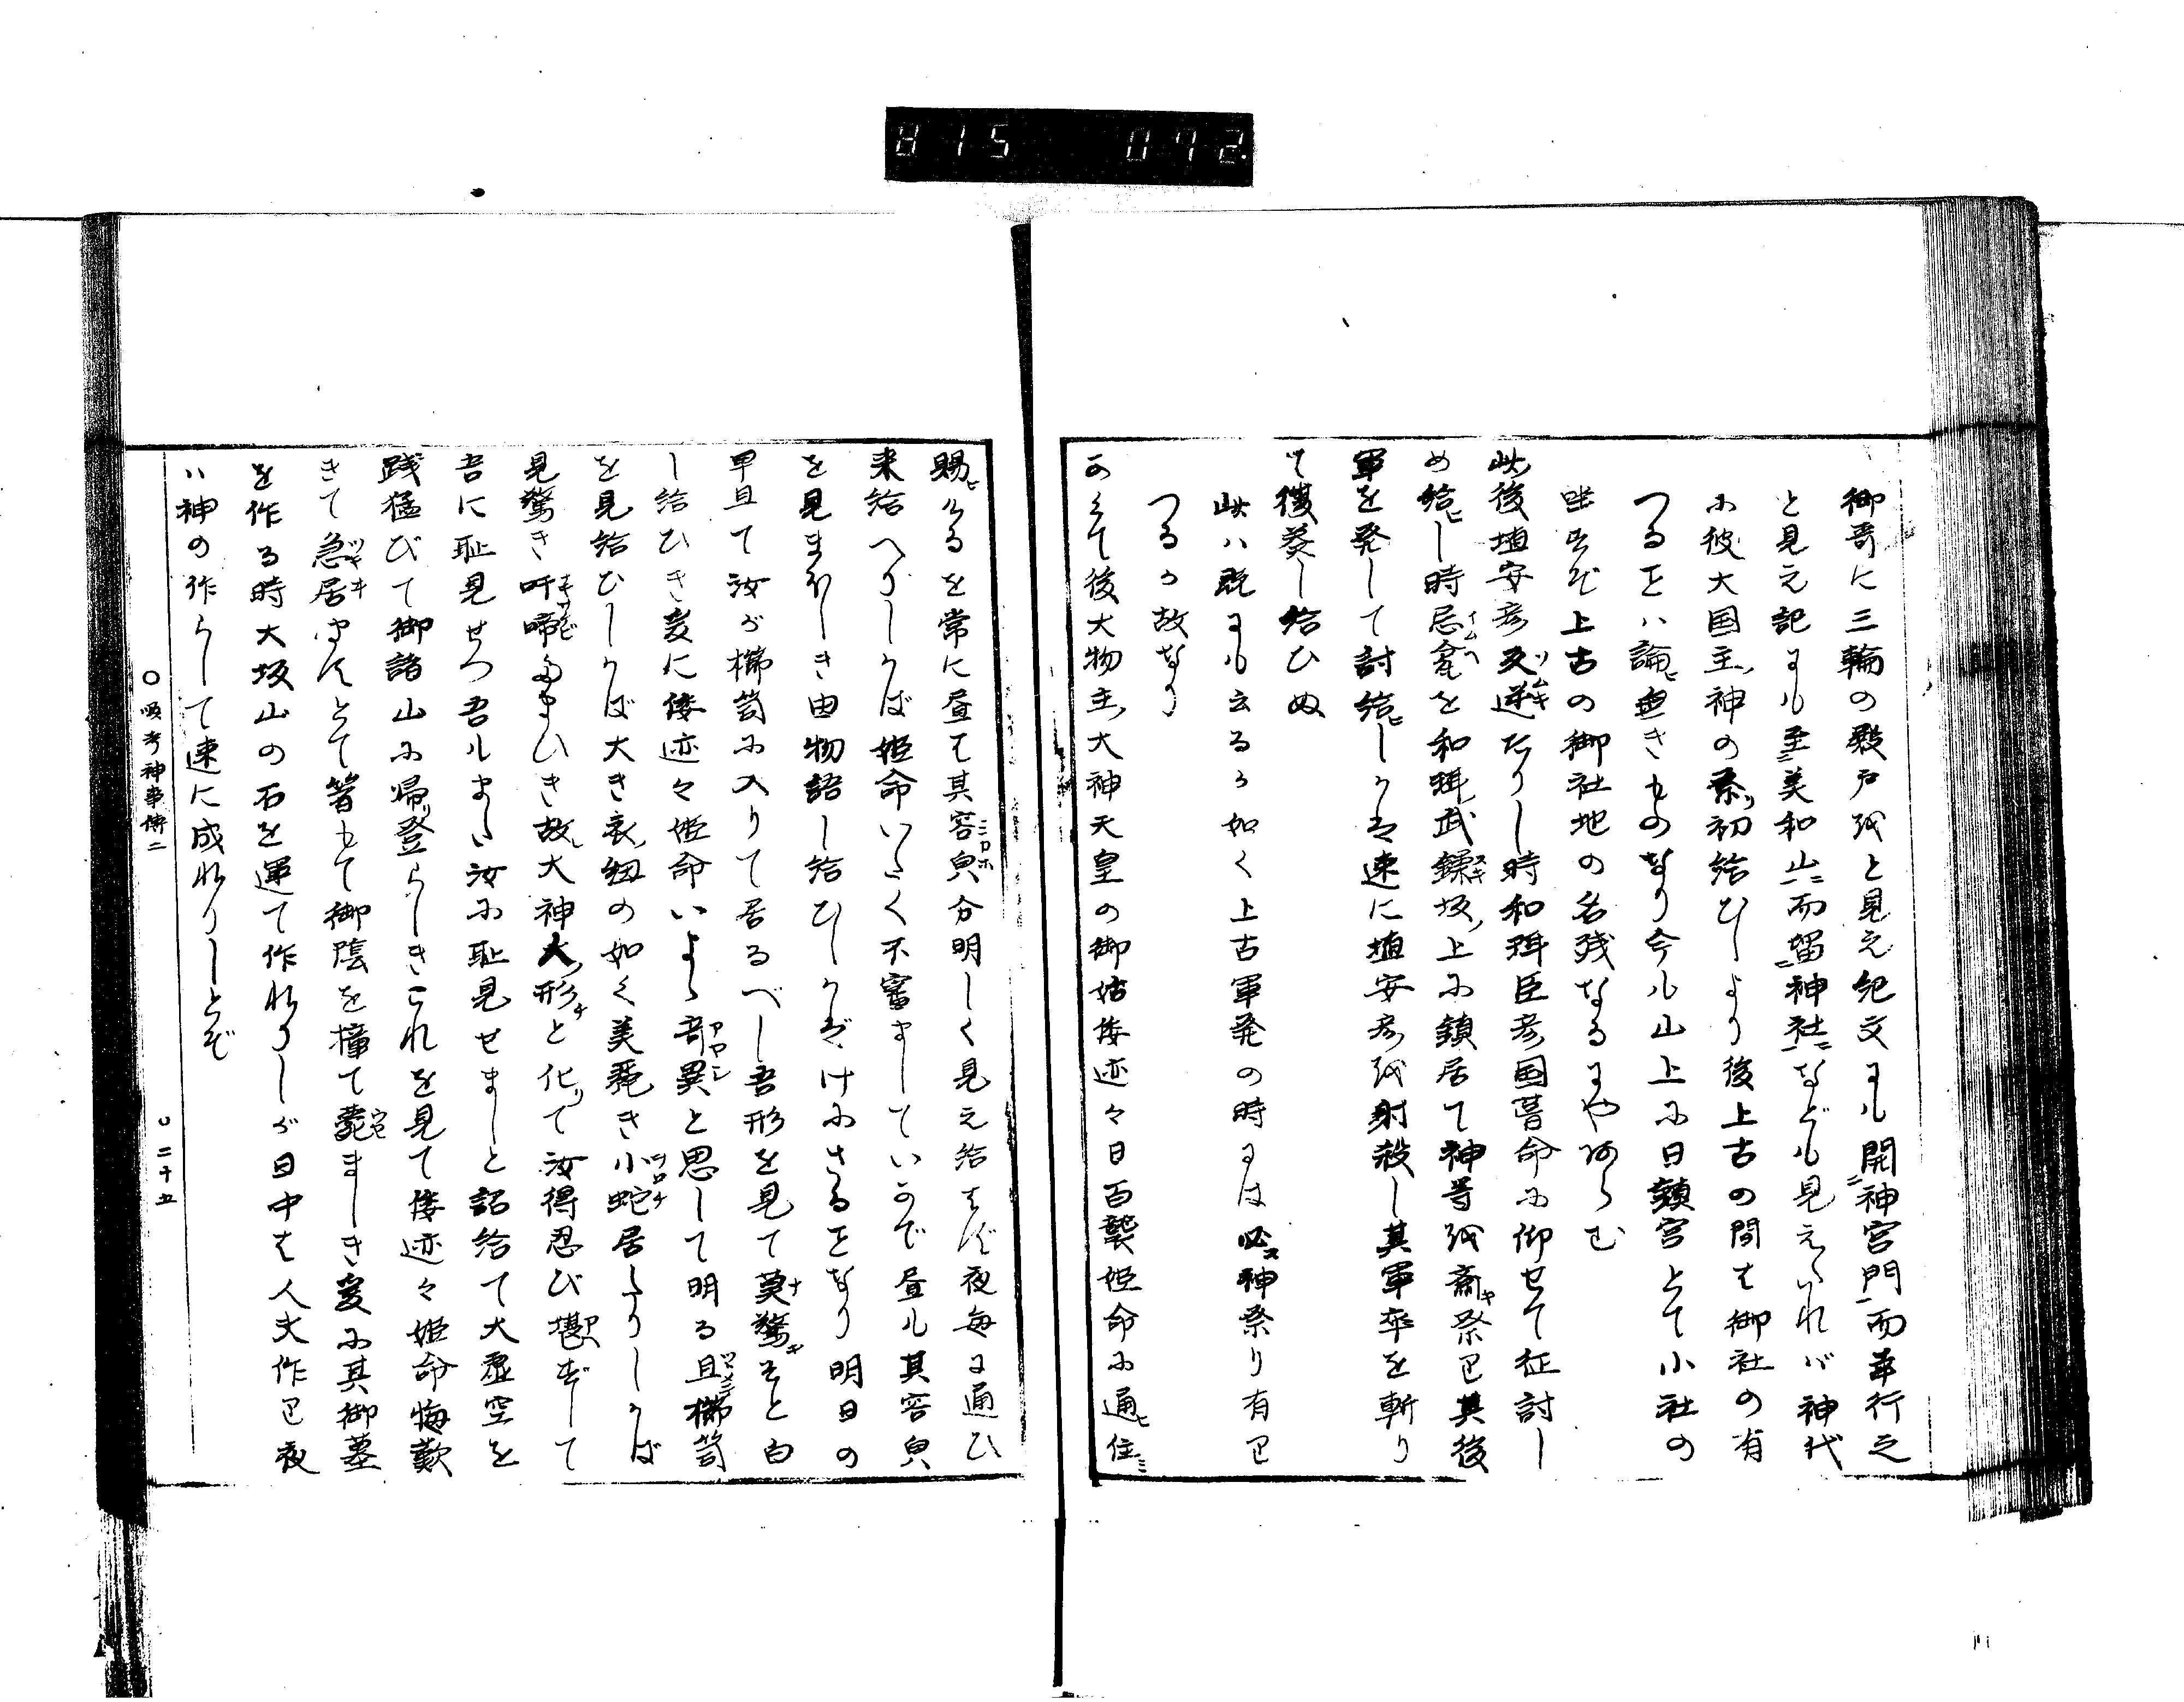 815 072
御哥に三輪の殿戸越と見え紀文にも開神宮門而幸行之
と見え記にも至美和山而留神社などとも見えたれバ神代
に彼大国主神の系初給ひしより後上古の間は御社の有
つるをハ論無きものなり今も山上に日鎮宮とて小社の
坐すぞ上古の御社地の名残なるにやあらむ
此後埴安彦反逆たりし時和珥臣彦国葺命に仰せて征討し
め給し時忌瓮を和珥武鐰坂上に鎮居て神等越斎祭り其後
軍を発して討給しかば速に埴安彦越射殺し其軍卒を斬り
て復奏し給ひぬ
此ハ既にも云るが如く上古軍発の時には必神祭り有り
つるが故なり
かくて後大物主大神天皇の御姑倭迹々日百襲姫命に通住
賜けるを常に昼は其容皃分明しく見え給はず夜毎に通ひ
来給へりしかば姫命いたく不審ましていかで昼も其容皃
を見まほしき由物語し給ひしかばげにさるをなり明日の
早旦て汝が櫛笥に入りて居るべし吾形を見て莫驚そと白
し給ひき爰に倭迹々姫命いよゝ奇異と思して明る旦櫛笥
を見給ひしかば大き衣紐の如く美麗き小蛇居たりしかば
見驚き叫啼たまひき故大神人形と化て汝得忍び堪ずして
吾に恥見せつ吾もまた汝に恥見せましと詔給て大虚空を
践猛びて御諸山に帰登らしきこれを見て倭迹々姫命悔歎
きて急居ましんとて箸もて御陰を撞て薨ましき爰に其御墓
を作る時大坂山の石を運て作れりしが日中は人夫作り夜
ハ神の作らして速に成れりしとぞ
○順考神事傳二
○二十五